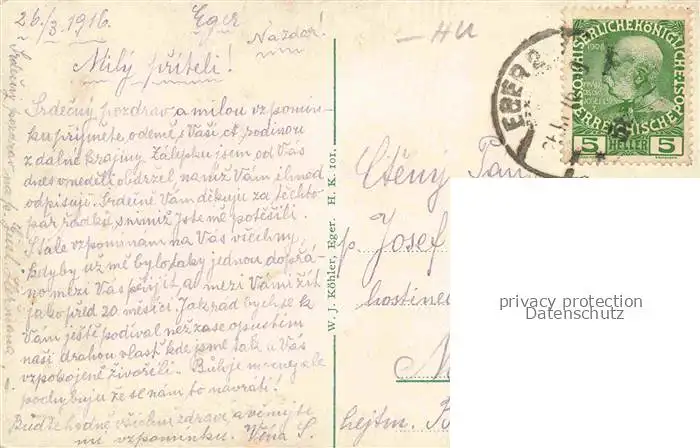 26./3. 1916. Eger
Nazdar!
Milý příteli!
Srdečný pozdrav a milou vzpomín-
ku přijměte odemě, i Vaší ct. rodinou
z dalné krajiny. Zálepku jsem od Vás
dnes v neděli obdržel, na niž Vám ihned
odpisuji. Srdečně Vám děkuji za těchto
pár řádků, s nimiž jste mě potěšili.
Stále vzpomínám na Vás všechny,
kdyby už mě bylo taky jednou dopřá-
no mezi Vás přijít a mezi Vámi žít
jako před 20 měsíci. Jak rád bych se k
Vám ještě podíval než zase opustím
naší drahou vlast kde jsme tak u Vás
vspokojeně živořili. Bůh je mocný ale
pochybuju že se nám to navrátí!
Buďte hodně všichni zdrávi, a věnujte
mi vzpomínku. Véna S.
Srdečný pozdrav na p.
W. J. Köhler, Eger. H. K. 101.
-HU
EGER
KAISERLICHE KÖNIGLICHE
ÖSTERREICHISCHE
1908
5 HELLER 5
Ctěný Pan
p. Josef
hostinec
hejtm.
privacy protection
Datenschutz